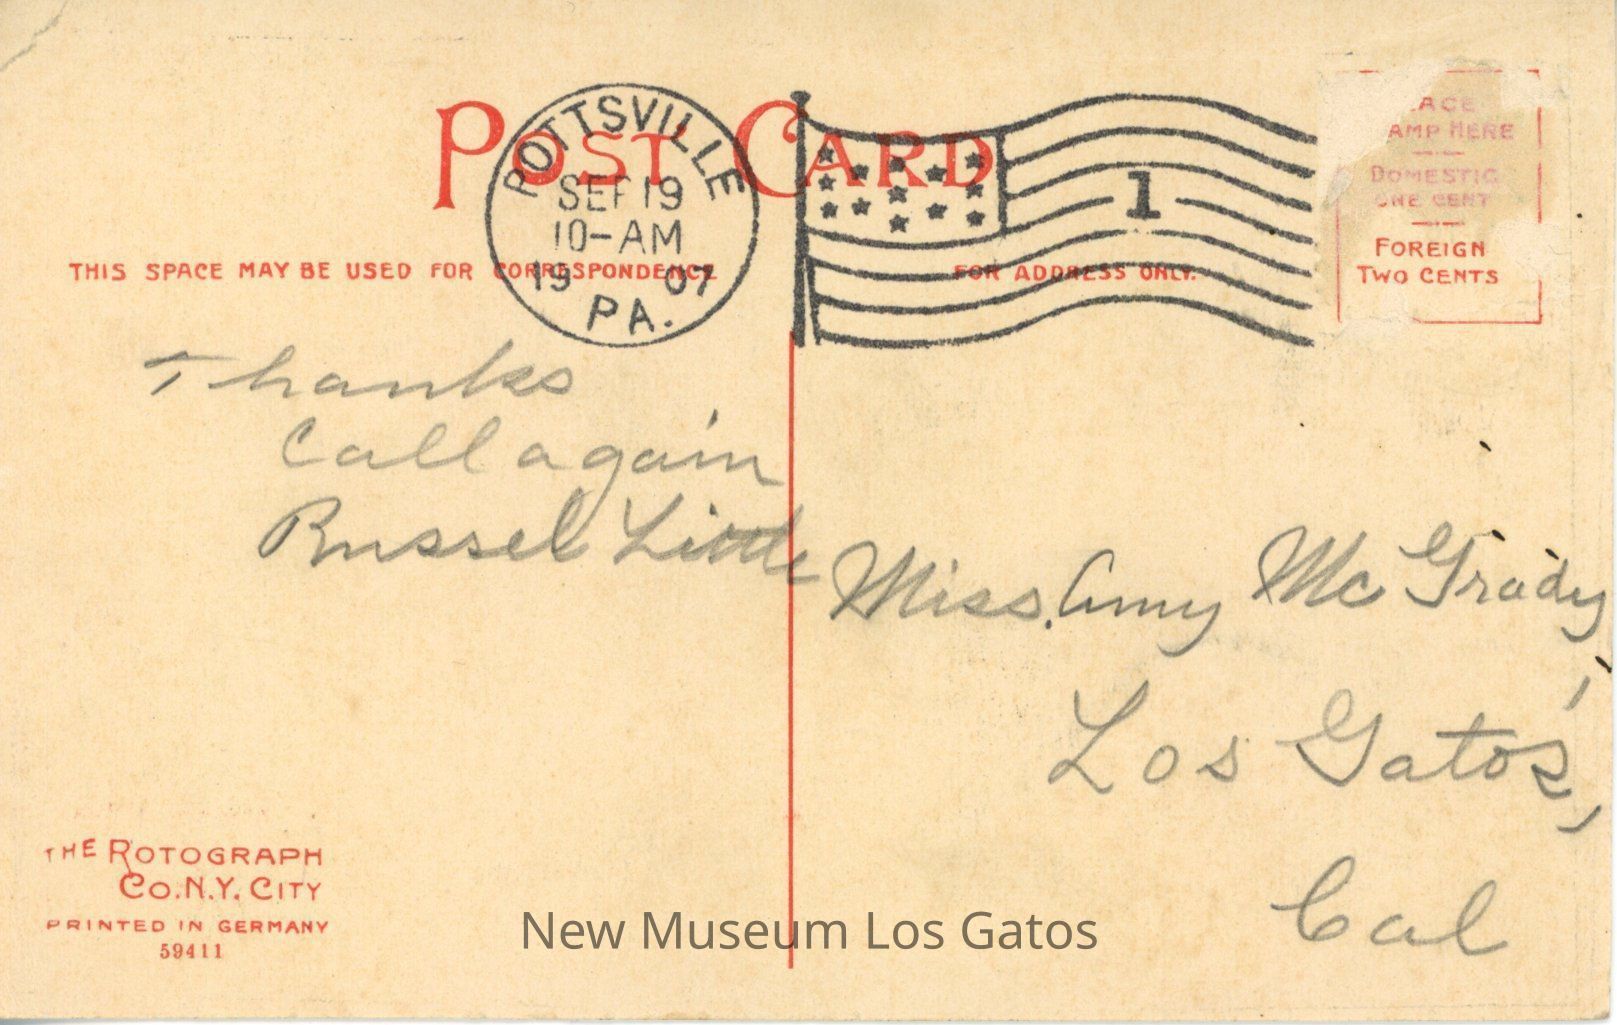 POST CARD
POTTSVILLE
SEP 19
10-AM
1907
PA.
1
ACE
AMP HERE
DOMESTIC
ONE CENT
FOREIGN
TWO CENTS
THIS SPACE MAY BE USED FOR CORRESPONDENCE
FOR ADDRESS ONLY.
Thanks
Call again
Russel Little
Miss. Amy McGrady,
Los Gatos,
Cal
THE ROTOGRAPH
CO. N.Y. CITY
PRINTED IN GERMANY
59411
New Museum Los Gatos